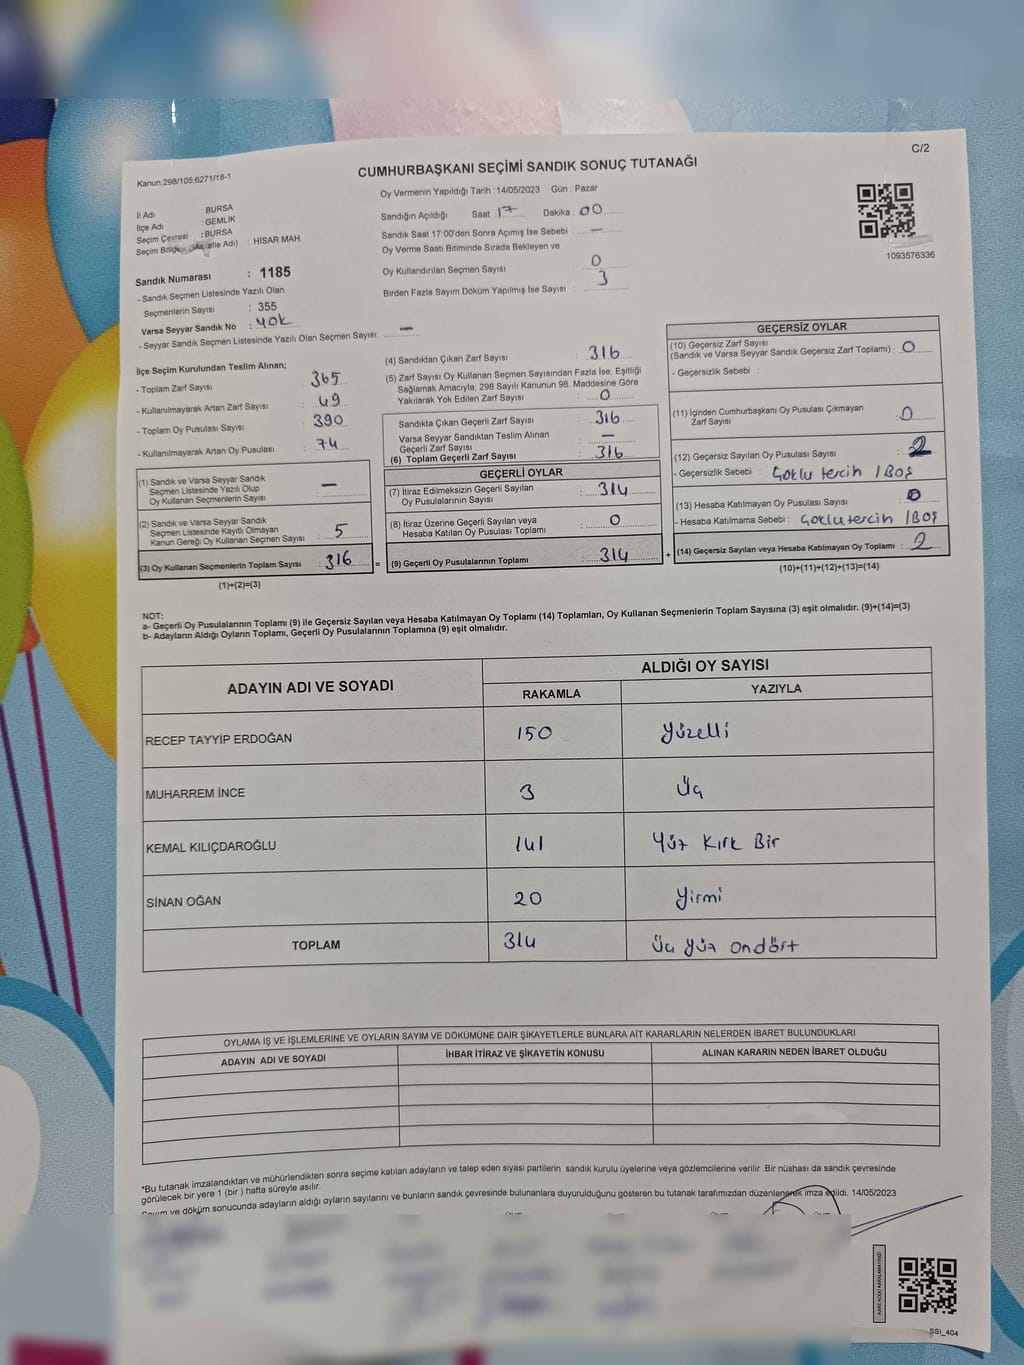 C/2
CUMHURBAŞKANI SEÇİMİ SANDIK SONUÇ TUTANAĞI
Kanun:298/105;6271/18-1
Oy Vermenin Yapıldığı Tarih : 14/05/2023 Gün : Pazar
İl Adı : BURSA
İlçe Adı : GEMLİK
Seçim Çevresi : BURSA
Seçim Bölgesi (Mahalle Adı) : HİSAR MAH.
Sandık Numarası : 1185
- Sandık Seçmen Listesinde Yazılı Olan
Seçmenlerin Sayısı : 355
Varsa Seyyar Sandık No : YOK
- Seyyar Sandık Seçmen Listesinde Yazılı Olan Seçmen Sayısı: —
Sandığın Açıldığı Saat : 17 Dakika : 00
Sandık Saat 17:00'den Sonra Açımış İse Sebebi : —
Oy Verme Saati Bitiminde Sırada Bekleyen ve
Oy Kullandırılan Seçmen Sayısı : 0
Birden Fazla Sayım Döküm Yapılmış İse Sayısı : 3
1093576336
İlçe Seçim Kurulundan Teslim Alınan;
- Toplam Zarf Sayısı : 365
- Kullanılmayarak Artan Zarf Sayısı : 49
- Toplam Oy Pusulası Sayısı : 390
- Kullanılmayarak Artan Oy Pusulası : 74
(1) Sandık ve Varsa Seyyar Sandık
Seçmen Listesinde Yazılı Olup
Oy Kullanan Seçmenlerin Sayısı : —
(2) Sandık ve Varsa Seyyar Sandık
Seçmen Listesinde Kayıtlı Olmayan
Kanun Gereği Oy Kullanan Seçmen Sayısı : 5
(3) Oy Kullanan Seçmenlerin Toplam Sayısı : 316 =
(1)+(2)=(3)
(4) Sandıktan Çıkan Zarf Sayısı : 316
(5) Zarf Sayısı Oy Kullanan Seçmen Sayısından Fazla İse, Eşitliği
Sağlamak Amacıyla, 298 Sayılı Kanunun 98. Maddesine Göre
Yakılarak Yok Edilen Zarf Sayısı : 0
Sandıkta Çıkan Geçerli Zarf Sayısı : 316
Varsa Seyyar Sandıktan Teslim Alınan
Geçerli Zarf Sayısı : —
(6) Toplam Geçerli Zarf Sayısı : 316
GEÇERLİ OYLAR
(7) İtiraz Edilmeksizin Geçerli Sayılan
Oy Pusulalarının Sayısı : 314
(8) İtiraz Üzerine Geçerli Sayılan veya
Hesaba Katılan Oy Pusulası Toplamı : 0
(9) Geçerli Oy Pusulalarının Toplamı : 314 +
GEÇERSİZ OYLAR
(10) Geçersiz Zarf Sayısı
(Sandık ve Varsa Seyyar Sandık Geçersiz Zarf Toplamı) : 0
- Geçersizlik Sebebi :
(11) İçinden Cumhurbaşkanı Oy Pusulası Çıkmayan
Zarf Sayısı : 0
(12) Geçersiz Sayılan Oy Pusulası Sayısı : 2
- Geçersizlik Sebebi : Çoklu tercih / BOŞ
(13) Hesaba Katılmayan Oy Pusulası Sayısı : 0
- Hesaba Katılmama Sebebi : Çoklu tercih / BOŞ
(14) Geçersiz Sayılan veya Hesaba Katılmayan Oy Toplamı : 2
(10)+(11)+(12)+(13)=(14)
NOT:
a- Geçerli Oy Pusulalarının Toplamı (9) ile Geçersiz Sayılan veya Hesaba Katılmayan Oy Toplamı (14) Toplamları, Oy Kullanan Seçmenlerin Toplam Sayısına (3) eşit olmalıdır. (9)+(14)=(3)
b- Adayların Aldığı Oyların Toplamı, Geçerli Oy Pusulalarının Toplamına (9) eşit olmalıdır.
ADAYIN ADI VE SOYADI
ALDIĞI OY SAYISI
RAKAMLA YAZIYLA
RECEP TAYYİP ERDOĞAN 150 Yüzelli
MUHARREM İNCE 3 Üç
KEMAL KILIÇDAROĞLU 141 Yüz Kırk Bir
SİNAN OĞAN 20 Yirmi
TOPLAM 314 Üç yüz ondört
OYLAMA İŞ VE İŞLEMLERİNE VE OYLARIN SAYIM VE DÖKÜMÜNE DAİR ŞİKAYETLERLE BUNLARA AİT KARARLARIN NELERDEN İBARET BULUNDUKLARI
ADAYIN ADI VE SOYADI İHBAR İTİRAZ VE ŞİKAYETİN KONUSU ALINAN KARARIN NEDEN İBARET OLDUĞU
*Bu tutanak imzalandıktan ve mühürlendikten sonra seçime katılan adayların ve talep eden siyasi partilerin sandık kurulu üyelerine veya gözlemcilerine verilir .Bir nüshası da sandık çevresinde
görülecek bir yere 1 (bir ) hafta süreyle asılır.
Sayım ve döküm sonucunda adayların aldığı oyların sayılarını ve bunların sandık çevresinde bulunanlara duyurulduğunu gösteren bu tutanak tarafımızdan düzenlenerek imza edildi. 14/05/2023
SSI_404